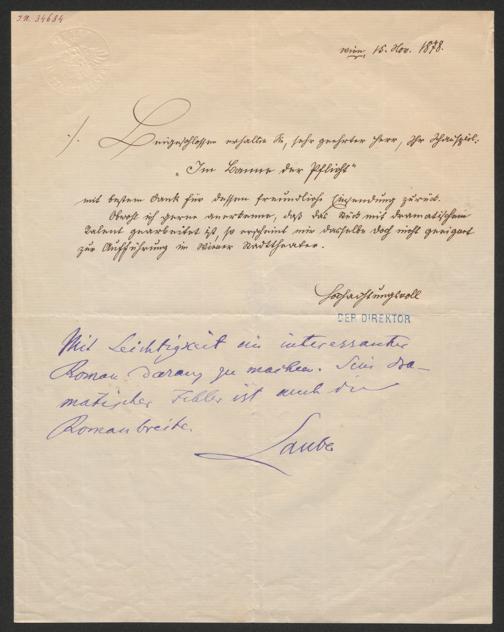 I.N. 34684
Wien, 15. Nov. 1878.
./. Beigeschlossen erhalten Sie, sehr geehrter Herr, Ihr Schauspiel:
„Im Banne der Pflicht“
mit bestem Dank für dessen freundliche Einsendung zurück.
Obwohl ich gerne anerkenne, daß das Stück mit dramatischem
Talent gearbeitet ist, so erscheint mir dasselbe doch nicht geeignet
zur Aufführung im Wiener Stadttheater.
Hochachtungsvoll
DER DIREKTOR
Mit Leichtigkeit ein interessanter
Roman daraus zu machen. Sein dra-
matischer Fehler ist auch die
Romanbreite.
Laube